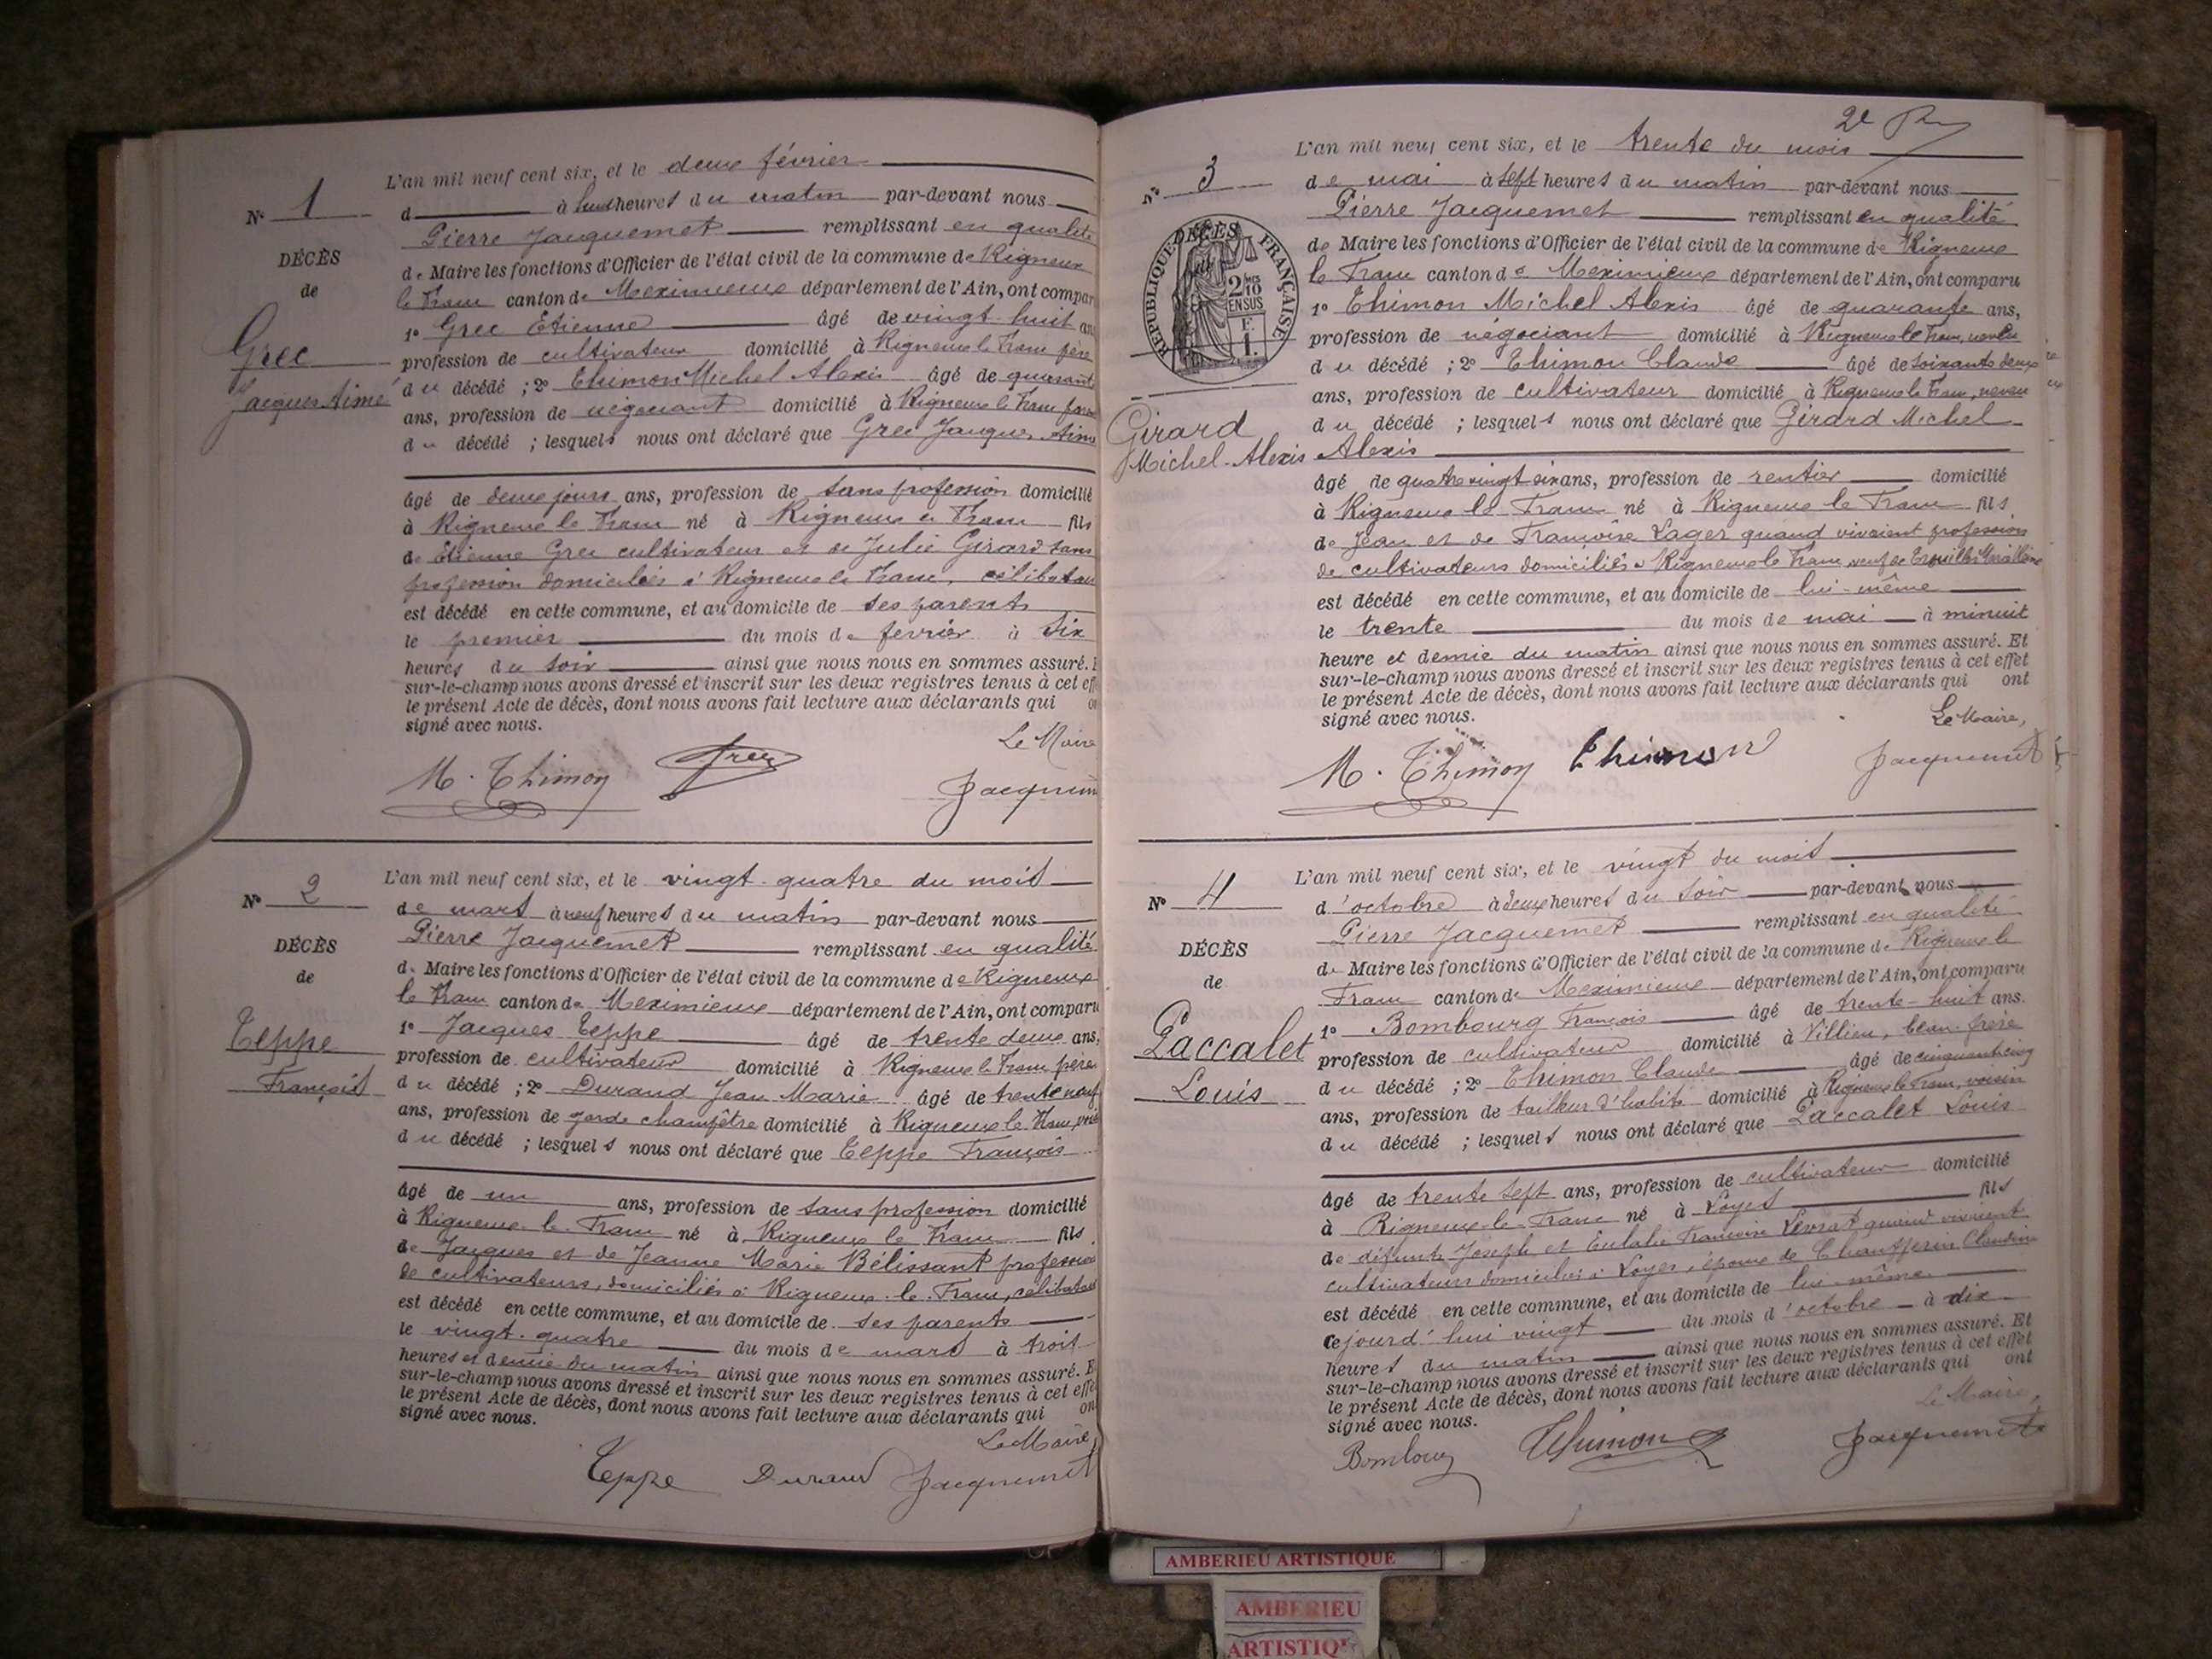 L'an mil neuf cent six, et le deux février
N° 1
d à huit heures du matin par-devant nous
Pierre Jacquemet remplissant en qualité
DÉCÈS
de Maire les fonctions d'Officier de l'état civil de la commune de Rigneux
de
le Franc canton de Meximieux département de l'Ain, ont compar
1° Grec Etienne âgé de vingt huit an
Grec
profession de cultivateur domicilié à Rigneux le Franc père
Jacques Aimé
du décédé ; 2° Thimon Michel Alexis âgé de quarante
ans, profession de négociant domicilié à Rigneux le Franc
du décédé ; lesquels nous ont déclaré que Grec Jacques Aimé
âgé de deux jours ans, profession de sans profession domicilié
à Rigneux le Franc né à Rigneux le Franc fils
de Etienne Grec cultivateur et de Julie Girard sans
profession domiciliés à Rigneux le Franc, célibataire
est décédé en cette commune, et au domicile de ses parents
le premier du mois de février à six
heures du soir ainsi que nous nous en sommes assuré.
sur-le-champ nous avons dressé et inscrit sur les deux registres tenus à cet eff
le présent Acte de décès, dont nous avons fait lecture aux déclarants qui o
signé avec nous.
Le Maire
M. Thimon Grec Jacquem
L'an mil neuf cent six, et le vingt-quatre du mois
N° 2
de mars à neuf heures du matin par-devant nous
Pierre Jacquemet remplissant en qualité
DÉCÈS
de Maire les fonctions d'Officier de l'état civil de la commune de Rigneux
de
le Franc canton de Meximieux département de l'Ain, ont comparu
1° Jacques Teppe âgé de trente deux ans,
Teppe
profession de cultivateur domicilié à Rigneux le Franc père
François
du décédé ; 2° Durand Jean Marie âgé de trente neuf
ans, profession de garde champêtre domicilié à Rigneux le Franc
du décédé ; lesquels nous ont déclaré que Teppe François
âgé de un ans, profession de sans profession domicilié
à Rigneux-le-Franc né à Rigneux le Franc fils
de Jacques et de Jeanne Marie Bélissant profession
de cultivateurs, domiciliés à Rigneux-le-Franc, célibataire
est décédé en cette commune, et au domicile de ses parents
le vingt-quatre du mois de mars à trois
heures et demie du matin ainsi que nous nous en sommes assuré. E
sur-le-champ nous avons dressé et inscrit sur les deux registres tenus à cet effe
le présent Acte de décès, dont nous avons fait lecture aux déclarants qui on
signé avec nous.
Le Maire,
Teppe Durand Jacquemet
2e
L'an mil neuf cent six, et le trente du mois
N° 3
de mai à sept heures du matin par-devant nous
Pierre Jacquemet remplissant en qualité
RÉPUBLIQUE FRANÇAISE
DÉCÈS
de
2/10 EN SUS
F. 1.
de Maire les fonctions d'Officier de l'état civil de la commune de Rigneux
le Franc canton de Meximieux département de l'Ain, ont comparu
1° Thimon Michel Alexis âgé de quarante ans,
profession de négociant domicilié à Rigneux le Franc, neveu
du décédé ; 2° Thimon Claude âgé de soixante deux
ans, profession de cultivateur domicilié à Rigneux le Franc, neveu
Girard
du décédé ; lesquels nous ont déclaré que Girard Michel
Michel-Alexis
Alexis
âgé de quatre vingt six ans, profession de rentier domicilié
à Rigneux le Franc né à Rigneux le Franc fils
de Jean et de Françoise Lager quand vivaient profession
de cultivateurs domiciliés à Rigneux le Franc, veuf de
est décédé en cette commune, et au domicile de lui-même
le trente du mois de mai à minuit
heure et demie du matin ainsi que nous nous en sommes assuré. Et
sur-le-champ nous avons dressé et inscrit sur les deux registres tenus à cet effet
le présent Acte de décès, dont nous avons fait lecture aux déclarants qui ont
signé avec nous.
Le Maire,
M. Thimon Thimon Jacquemet
L'an mil neuf cent six, et le vingt du mois
N° 4
d'octobre à deux heures du soir par-devant nous
Pierre Jacquemet remplissant en qualité
DÉCÈS
de Maire les fonctions d'Officier de l'état civil de la commune de Rigneux le
de
Franc canton de Meximieux département de l'Ain, ont comparu
1° Bombourg François âgé de trente-huit ans.
Paccalet
profession de cultivateur domicilié à Villieu, beau-frère
Louis
du décédé ; 2° Thimon Claude âgé de cinquante cinq
ans, profession de tailleur d'habits domicilié à Rigneux le Franc, voisin
du décédé ; lesquels nous ont déclaré que Paccalet Louis
âgé de trente sept ans, profession de cultivateur domicilié
à Rigneux-le-Franc né à Loyes fils
de défunts Joseph et Eulalie Françoise Levrat quand vivaient
cultivateurs domiciliés à Loyes, époux de Claudine
est décédé en cette commune, et au domicile de lui-même
cejourd'hui vingt du mois d'octobre à dix
heures du matin ainsi que nous nous en sommes assuré. Et
sur-le-champ nous avons dressé et inscrit sur les deux registres tenus à cet effet
le présent Acte de décès, dont nous avons fait lecture aux déclarants qui ont
signé avec nous.
Le Maire,
Bombourg Thimon Jacquemet
AMBERIEU ARTISTIQUE
AMBERIEU
ARTISTIQU